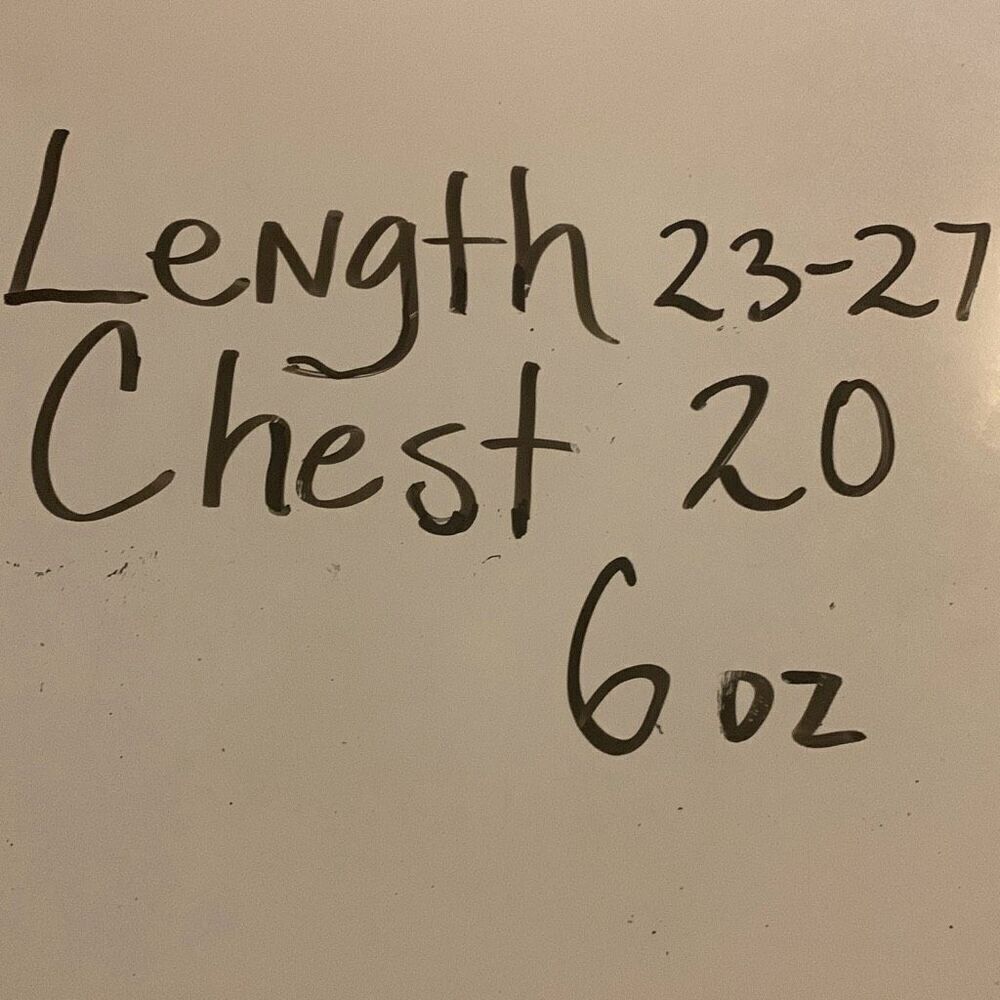 Length 23-27
Chest 20
6 oz